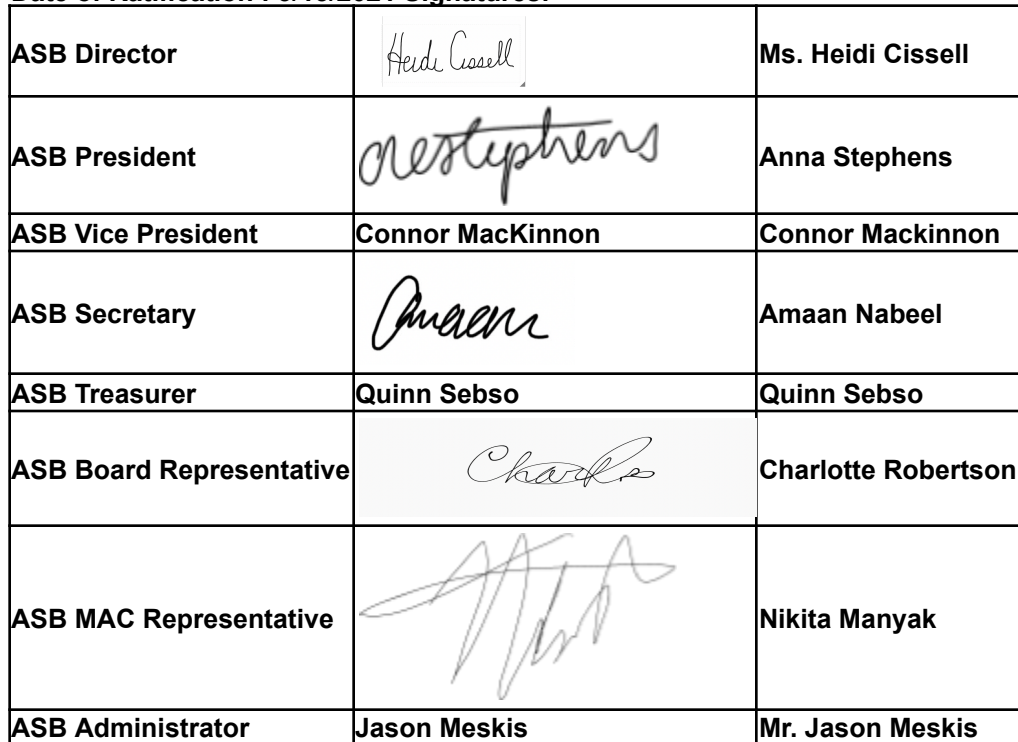 ASB Director Heidi Cissell Ms. Heidi Cissell
ASB President Anna Stephens
ASB Vice President Connor MacKinnon Connor Mackinnon
ASB Secretary Amaan Amaan Nabeel
ASB Treasurer Quinn Sebso Quinn Sebso
ASB Board Representative Charlotte Robertson
ASB MAC Representative Nikita Manyak
ASB Administrator Jason Meskis Mr. Jason Meskis